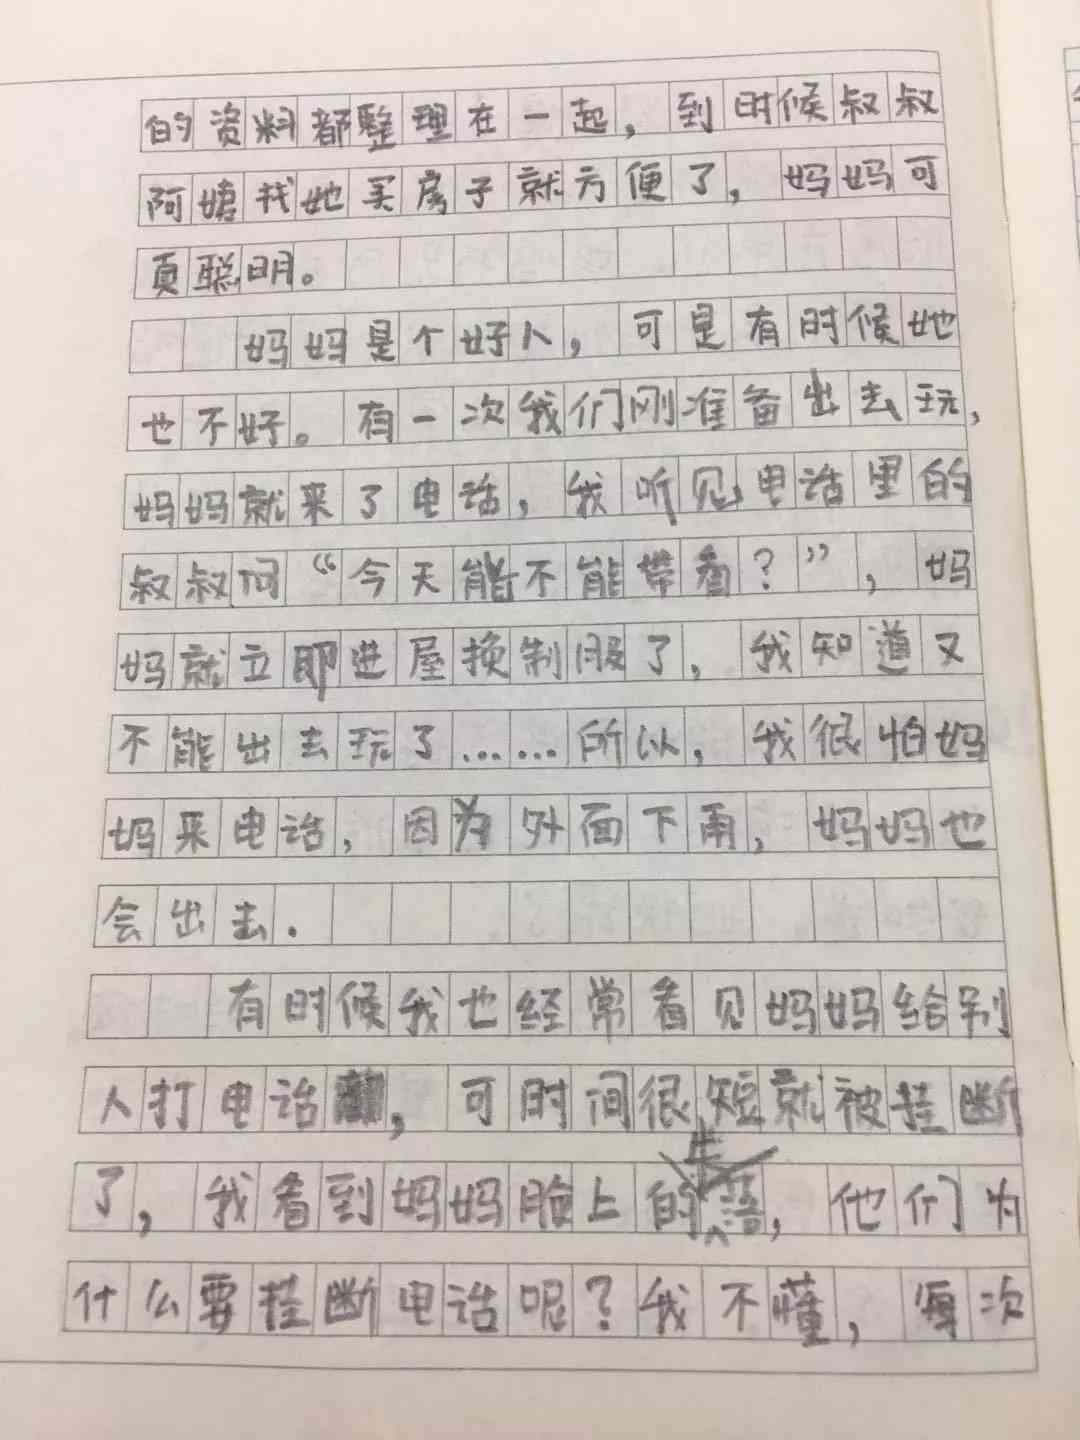 的资料都整理在一起，到时候叔叔
阿姨找她买房子就方便了，妈妈可
真聪明。
妈妈是个好人，可是有时候她
也不好。有一次我们刚准备出去玩，
妈妈就来了电话，我听见电话里的
叔叔问“今天能不能带看？”，妈
妈就立即进屋换制服了，我知道又
不能出去玩了……所以，我很怕妈
妈来电话，因为外面下雨，妈妈也
会出去.
有时候我也经常看见妈妈给别
人打电话，可时间很短就被挂断
了，我看到妈妈脸上的失落，他们为
什么要挂断电话呢？我不懂，每次